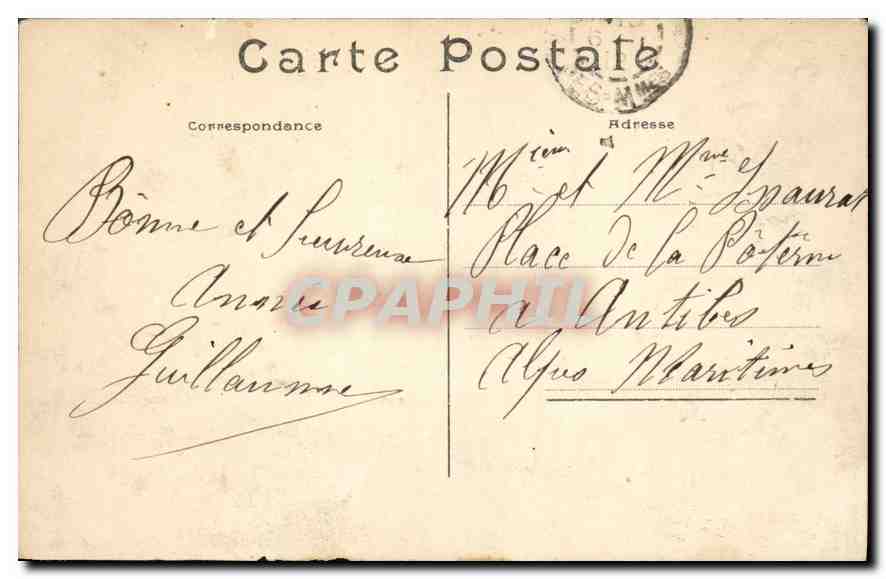 Carte Postale
Correspondance
Adresse
Bonne et heureuse
Année
Guillaume
M et Mme
Place de la Poterne
a Antibes
Alpes Maritimes
CPAPHIL